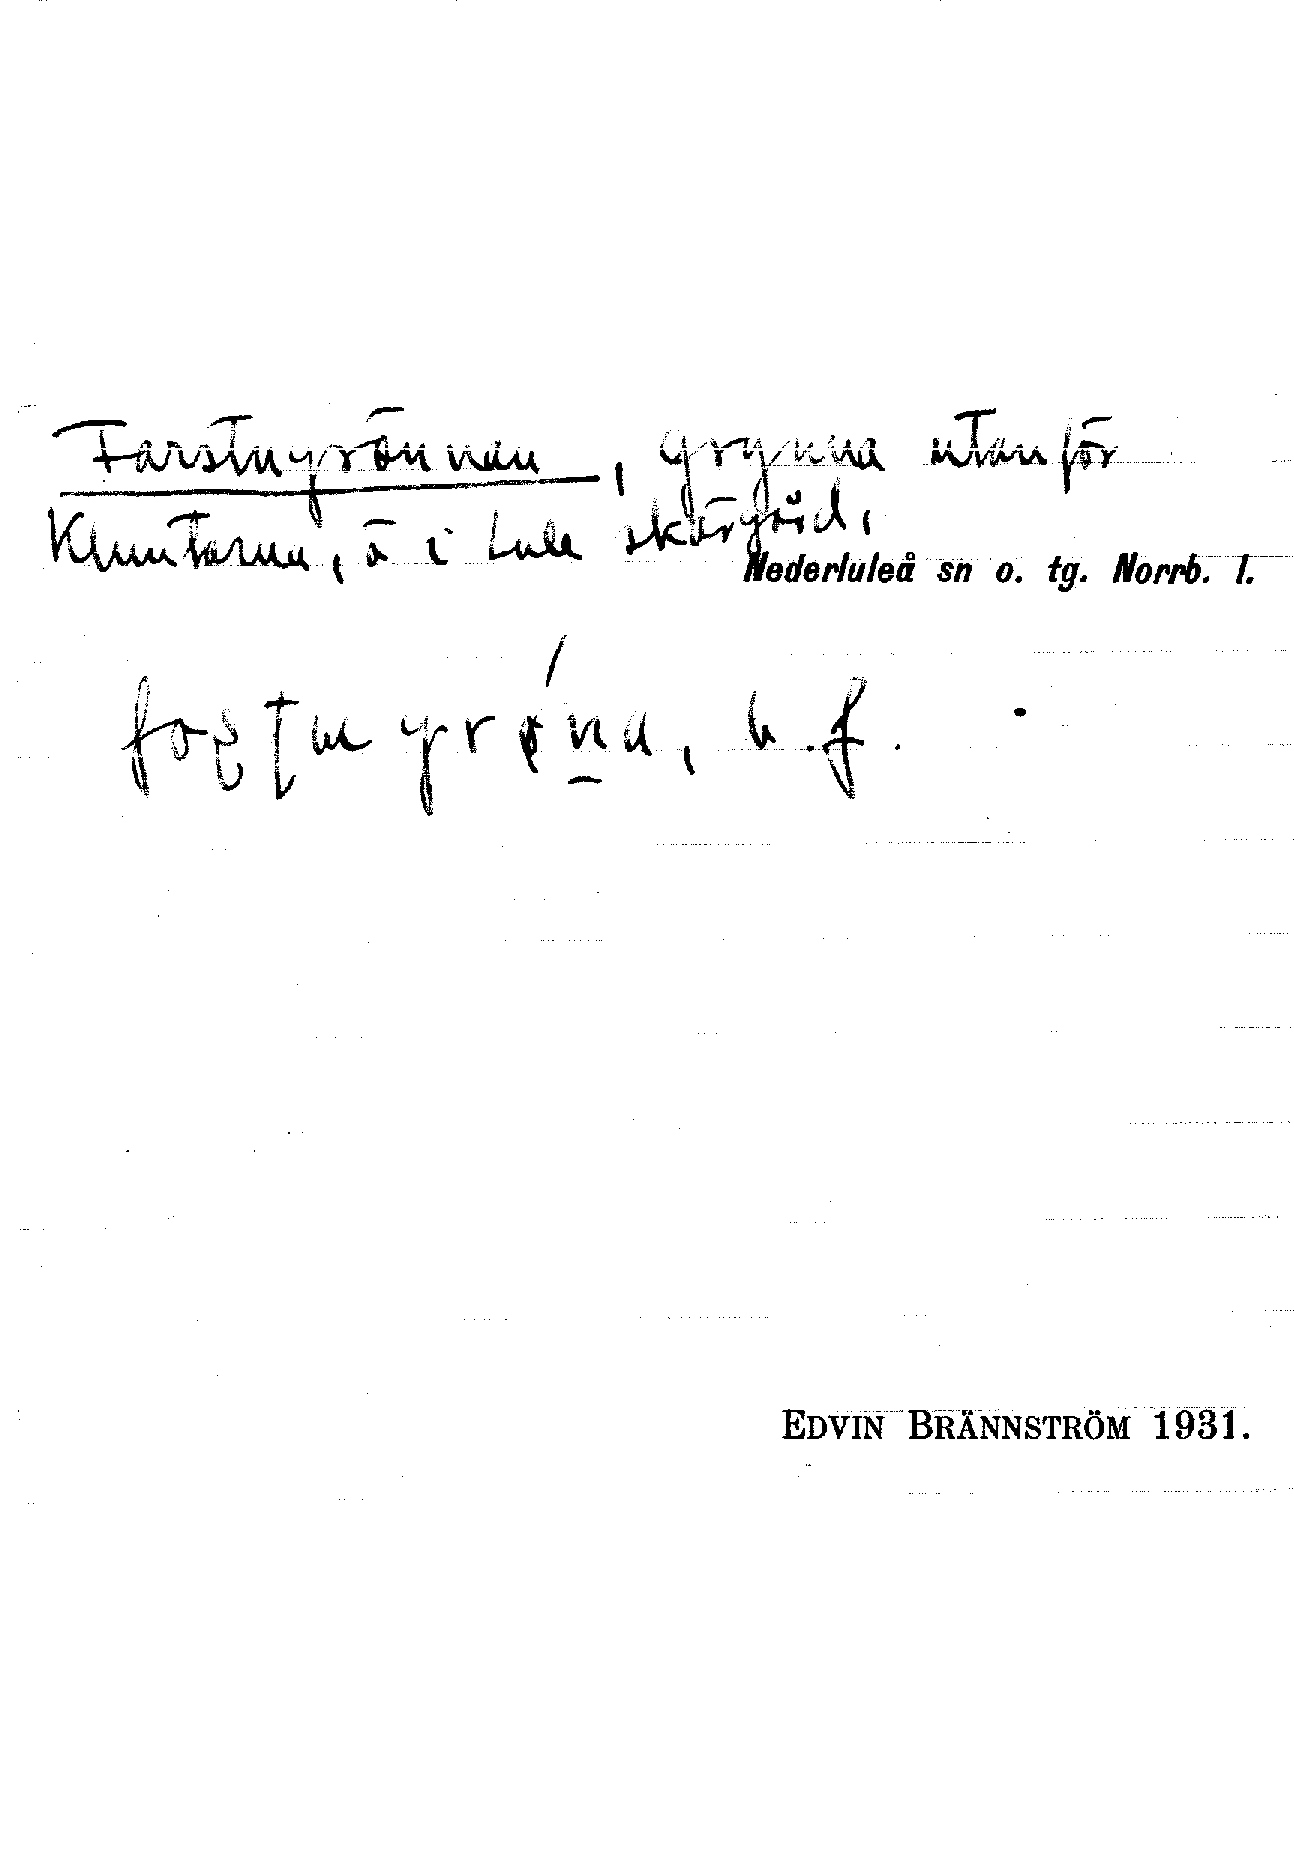 Farstugrönnan, grynna utanför
Kluntarna, ö i Lule skärgård,
Nederluleå sn o. tg. Norrb. l.
n. f.
EDVIN BRÄNNSTRÖM 1931.